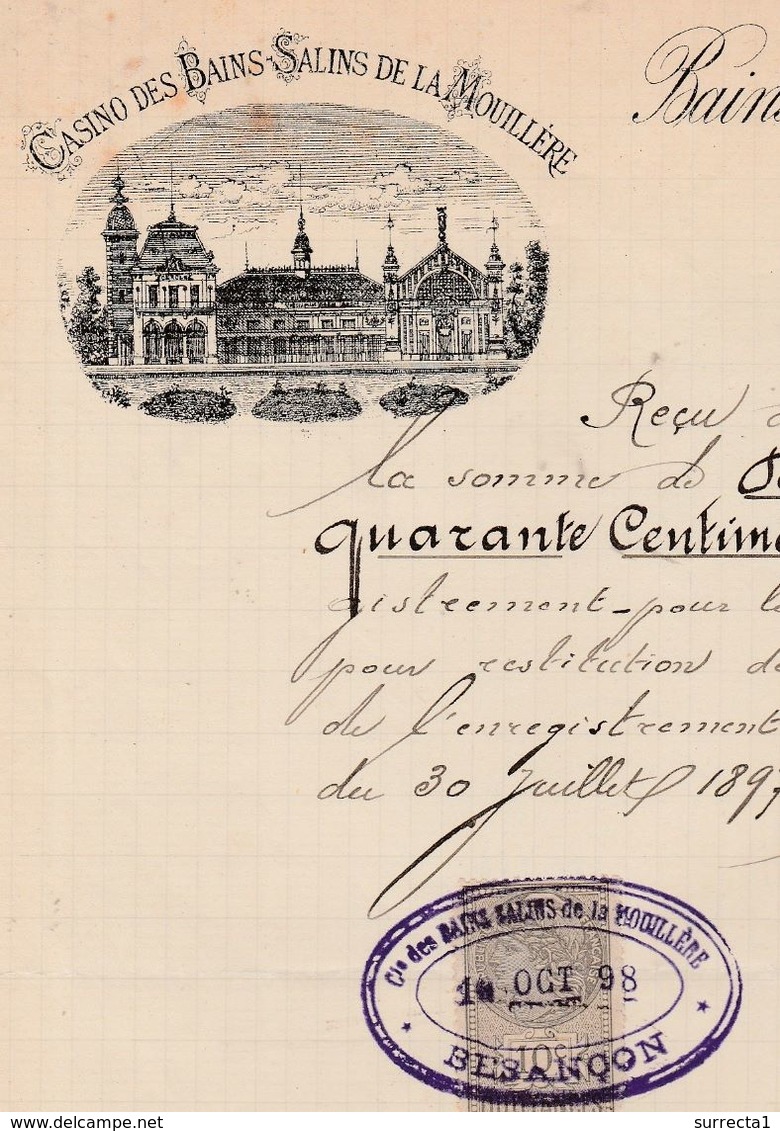 CASINO DES BAINS-SALINS DE LA MOUILLÈRE
Bains
Reçu
la somme de
quarante Centim
gistrement - pour l
pour restitution de
de l'enregistrement
du 30 Juillet 1897
Cie des BAINS SALINS de la MOUILLÈRE
OCT 98
10c
BESANÇON
www.delcampe.net
surrecta1